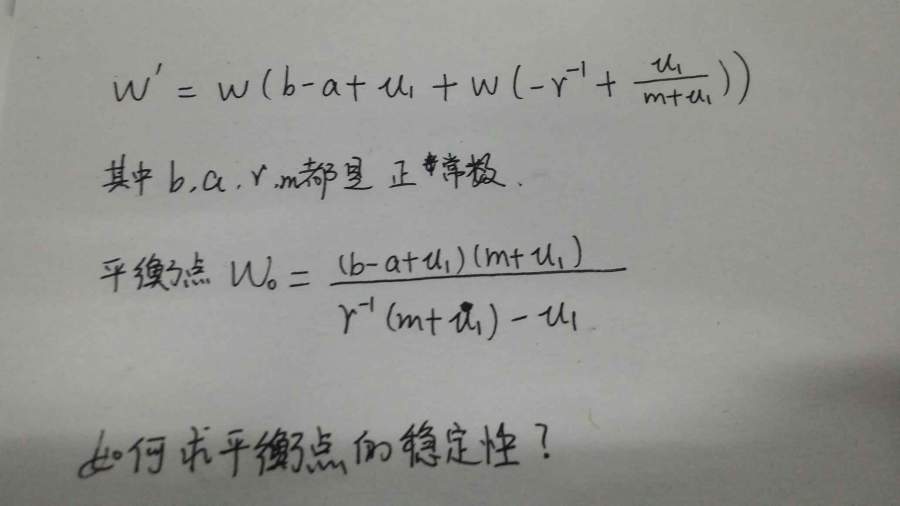 w' = w(b-a+u₁+w(-r⁻¹+\frac{u₁}{m+u₁}))
其中 b,a,r,m都是 正常数.
平衡点 W₀ = \frac{(b-a+u₁)(m+u₁)}{r⁻¹(m+u₁)-u₁}
如何求平衡点的稳定性?